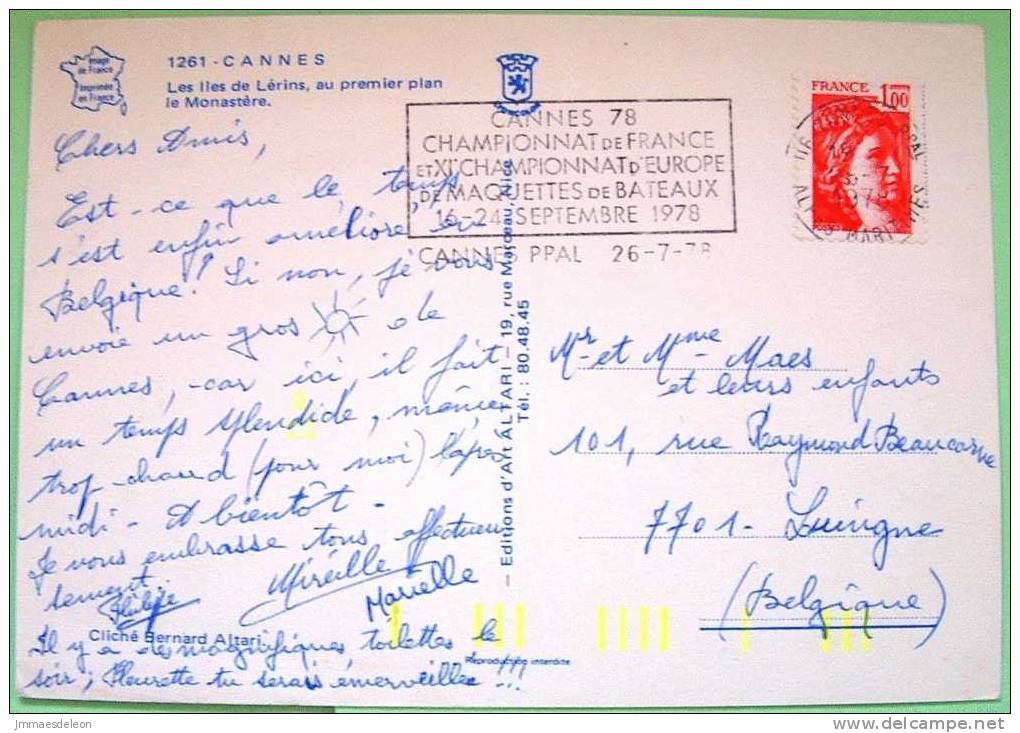 Image
de France
Imprimée
en France
1261 - CANNES
Les Iles de Lérins, au premier plan
le Monastère.
Chers Amis,
Est-ce que le temps
s'est enfin amélioré en
Belgique? Si non, je vous
envoie un gros de
Cannes, car ici, il fait
un temps splendide, même
trop chaud (pour moi) l'après
midi - A bientôt -
Je vous embrasse tous affectueu
sement.
Philippe Mireille Marielle
Cliché Bernard Altari
Il y a de magnifiques toilettes le
soir; Fleurette tu serais émerveillée!!!
CANNES 78
CHAMPIONNAT DE FRANCE
ET XIe CHAMPIONNAT D'EUROPE
DE MAQUETTES DE BATEAUX
16-24 SEPTEMBRE 1978
CANNES PPAL 26-7-78
— Editions d'Art ALTARI — 19, rue Marceau, Nice
Tél. : 80.48.45
Reproduction interdite
FRANCE 1,00
PPAL
1978
ALPES MARITIMES
Mr et Mme Maes
et leurs enfants
101, rue Raymond Beaucarne
7701 - Luingne
(Belgique)
jmmaesdeleon
www.delcampe.net